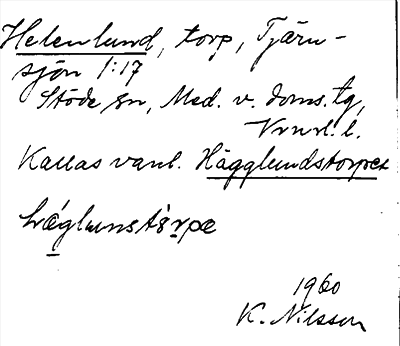 Helenlund, torp, Tjärn-
sjön 1:17
Stöde sn, Med. v. doms. tg,
Vrnrl. l.
Kallas vanl. Hägglundstorpet
hǽglunstò̱rpæ
1960
K. Nilsson